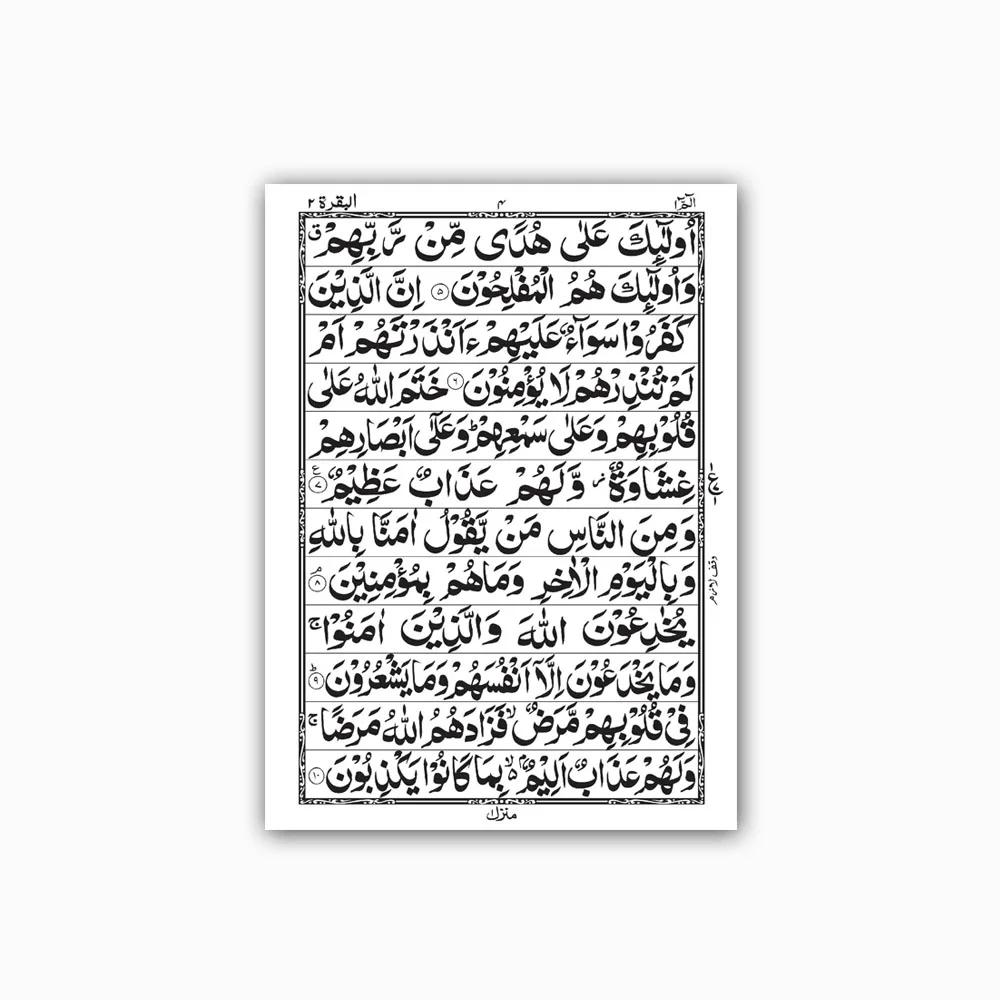 الٓمّٓ ١
۴
البقرة ٢
اُولٰٓئِكَ عَلٰى هُدًى مِّنْ رَّبِّهِمْ ق
وَاُولٰٓئِكَ هُمُ الْمُفْلِحُوْنَ ۵ اِنَّ الَّذِيْنَ
كَفَرُوْا سَوَآءٌ عَلَيْهِمْ ءَاَنْذَرْتَهُمْ اَمْ
لَمْ تُنْذِرْهُمْ لَا يُؤْمِنُوْنَ ۶ خَتَمَ اللّٰهُ عَلٰى
قُلُوْبِهِمْ وَعَلٰى سَمْعِهِمْ ؕ وَعَلٰٓى اَبْصَارِهِمْ
غِشَاوَةٌ ز وَّلَهُمْ عَذَابٌ عَظِيْمٌ ۷ ع
وَمِنَ النَّاسِ مَنْ يَّقُوْلُ اٰمَنَّا بِاللّٰهِ
وَبِالْيَوْمِ الْاٰخِرِ وَمَا هُمْ بِمُؤْمِنِيْنَ ۸ م
وقف لازم
يُخٰدِعُوْنَ اللّٰهَ وَالَّذِيْنَ اٰمَنُوْا ج
وَمَا يَخْدَعُوْنَ اِلَّآ اَنْفُسَهُمْ وَمَا يَشْعُرُوْنَ ۹ ط
فِيْ قُلُوْبِهِمْ مَّرَضٌ لا فَزَادَهُمُ اللّٰهُ مَرَضًا ج
وَلَهُمْ عَذَابٌ اَلِيْمٌ ۢ ۵ لا بِمَا كَانُوْا يَكْذِبُوْنَ ۱۰
منزل ١